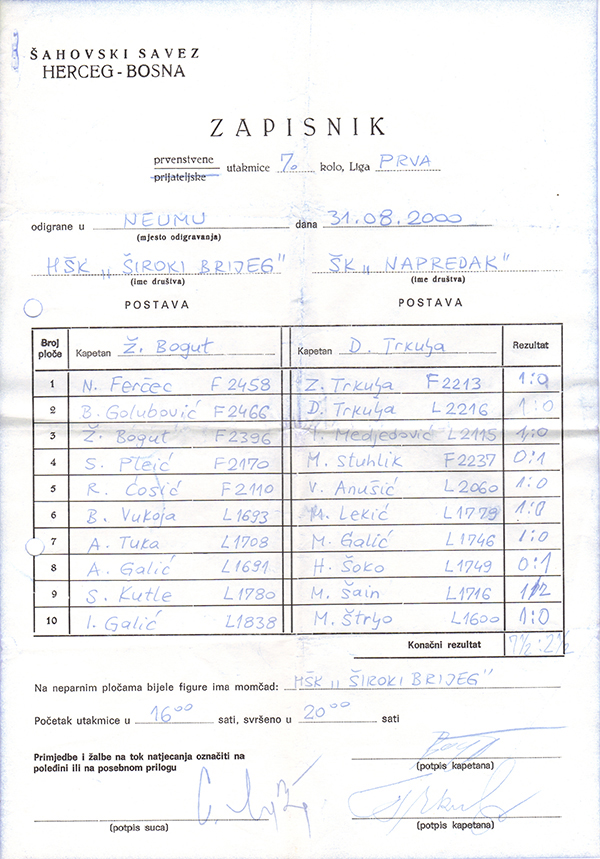 ŠAHOVSKI SAVEZ
HERCEG-BOSNA
ZAPISNIK
prvenstvene
prijateljske
utakmice 7. kolo, Liga PRVA
odigrane u NEUMU dana 31.08.2000
(mjesto odigravanja)
HŠK „ŠIROKI BRIJEG" ŠK „NAPREDAK"
(ime društva) (ime društva)
POSTAVA POSTAVA
Broj ploče Kapetan Ž. Bogut Kapetan D. Trkulja Rezultat
1 N. Ferčec F2458 Z. Trkulja F2213 1:0
2 B. Golubović F2466 D. Trkulja L2216 1:0
3 Ž. Bogut F2396 Medjedović L2115 1:0
4 S. Pleić F2170 M. Stuhlik F2237 0:1
5 R. Ćosić F2110 V. Anušić L2060 1:0
6 B. Vukoja L1693 M. Lekić L1779 1:0
7 A. Tuka L1708 M. Galić L1746 1:0
8 A. Galić L1691 H. Šoko L1749 0:1
9 S. Kutle L1780 M. Šain L1716 1/2
10 I. Galić L1838 M. Štrljo L1600 1:0
Konačni rezultat 7½:2½
Na neparnim pločama bijele figure ima momčad: HŠK „ŠIROKI BRIJEG"
Početak utakmice u 16⁰⁰ sati, svršeno u 20⁰⁰ sati
Primjedbe i žalbe na tok natjecanja označiti na
poleđini ili na posebnom prilogu
(potpis kapetana)
(potpis suca) (potpis kapetana)